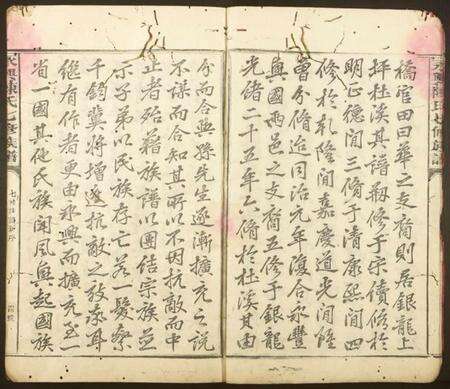 橋官田曰華之支裔則居銀龍上
坪杜溪其譜剙修于宋續修於
明正德間三脩于清康熙間四
修於乾隆間嘉慶道光間隆
曾分脩迨同治元年復合永豐
與國兩邑之支裔五修于銀龍
光緒二十五年六脩於杜溪其由
分而合與孫先生逐漸擴充之說
不謀而合知其所以不因抗敵而中
止者殆藉族譜以團結宗族並
示子弟以民族存亡若一髮繫
千鈞冀將增進抗敵之效率耳
繼有作者更由永興而擴充至一
省一國其從氏族聞風興起國族
永興陳氏七修族譜